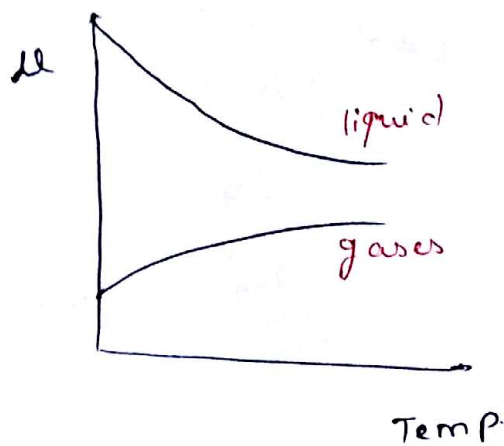 μ
liquid
gases
Temp.